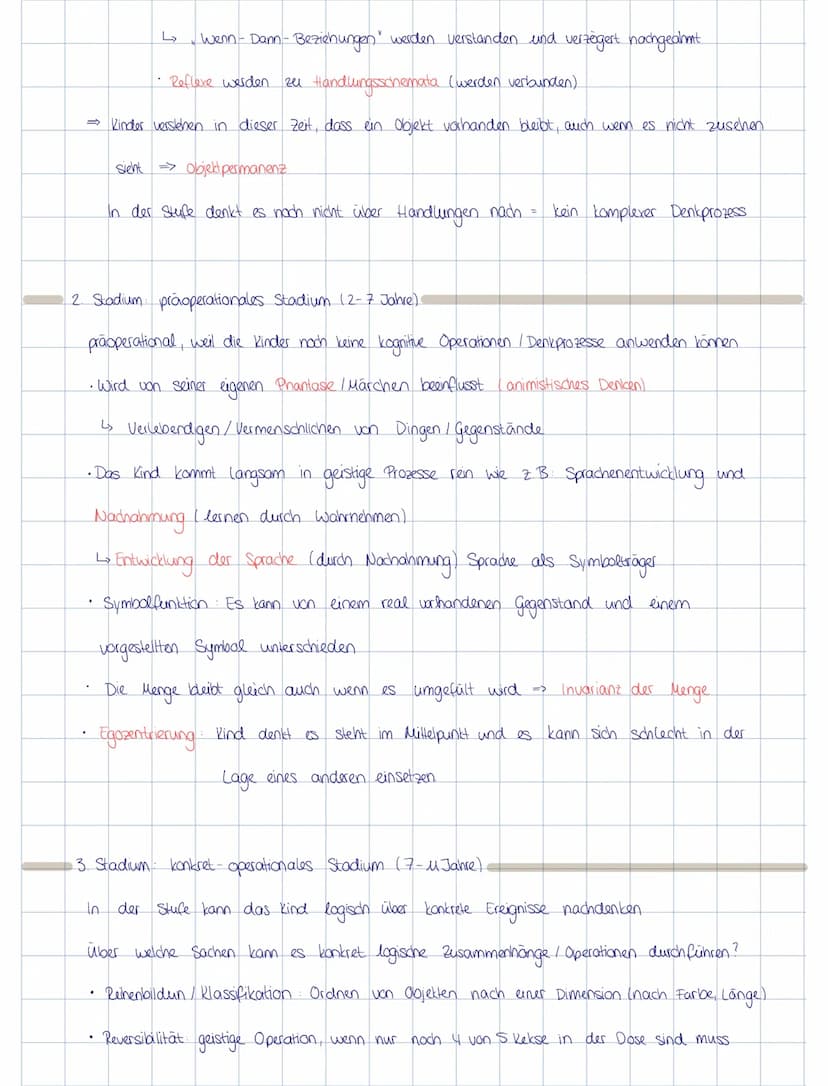 ↳ „Wenn-Dann-Beziehungen" werden verstanden und verzögert nachgeahmt
· Reflexe werden zu Handlungsschemata (werden verbunden)
⇒ Kinder verstehen in dieser Zeit, dass ein Objekt vorhanden bleibt, auch wenn es nicht zusehen
sieht ⇒ Objektpermanenz
In der Stufe denkt es noch nicht über Handlungen nach = kein komplexer Denkprozess
2. Stadium: präoperationales Stadium (2-7 Jahre)
präoperational, weil die Kinder noch keine kognitive Operationen / Denkprozesse anwenden können
· Wird von seiner eigenen Phantasie / Märchen beeinflusst (animistisches Denken)
↳ Verlebendigen / Vermenschlichen von Dingen / Gegenstände
· Das Kind kommt langsam in geistige Prozesse rein wie z.B. Sprachenentwicklung und
Nachahmung (lernen durch Wahrnehmen)
↳ Entwicklung der Sprache (durch Nachahmung) Sprache als Symbolträger
· Symbolfunktion: Es kann von einem real vorhandenen Gegenstand und einem
vorgestellten Symbol unterschieden
· Die Menge bleibt gleich auch wenn es umgefült wird ⇒ Invarianz der Menge
· Egozentrierung: Kind denkt es steht im Mittelpunkt und es kann sich schlecht in der
Lage eines anderen einsetzen
3. Stadium: konkret-operationales Stadium (7-11 Jahre)
In der Stufe kann das Kind logisch über konkrete Ereignisse nachdenken
Über welche Sachen kann es konkret logische Zusammenhänge / Operationen durchführen?
· Reihenbilden / Klassifikation: Ordnen von Objekten nach einer Dimension (nach Farbe, Länge)
· Reversibilität: geistige Operation, wenn nur noch 4 von 5 Kekse in der Dose sind muss